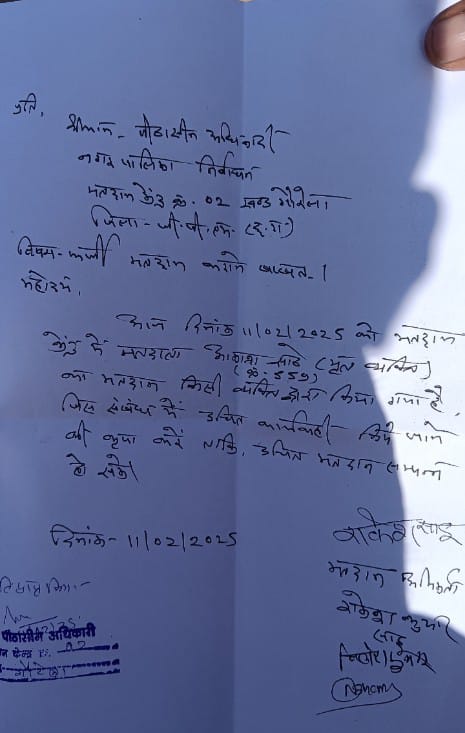 प्रति,
श्रीमान - पीठासीन अधिकारी
नगर पालिका निर्वाचन
मतदान केंद्र क्र. 02 खण्ड गौरेला
जिला - जी.पी.एम. (छ.ग.)
विषय - फर्जी मतदान करने बाबत - ।
महोदय,
आज दिनांक 11/02/2025 को मतदान
केंद्र में मतदाता साहू (मृत व्यक्ति)
(क्र. 559)
का मतदान किसी व्यक्ति द्वारा किया गया है,
जिस संबंध में उचित कार्यवाही किये जाने
की कृपा करें ताकि, उचित मतदान सम्पन्न
हो सके।
दिनांक - 11/02/2025
राकेश साहू
मतदान अभिकर्ता
राकेश कुमार
साहू
पीठासीन अधिकारी
02
गौरेला